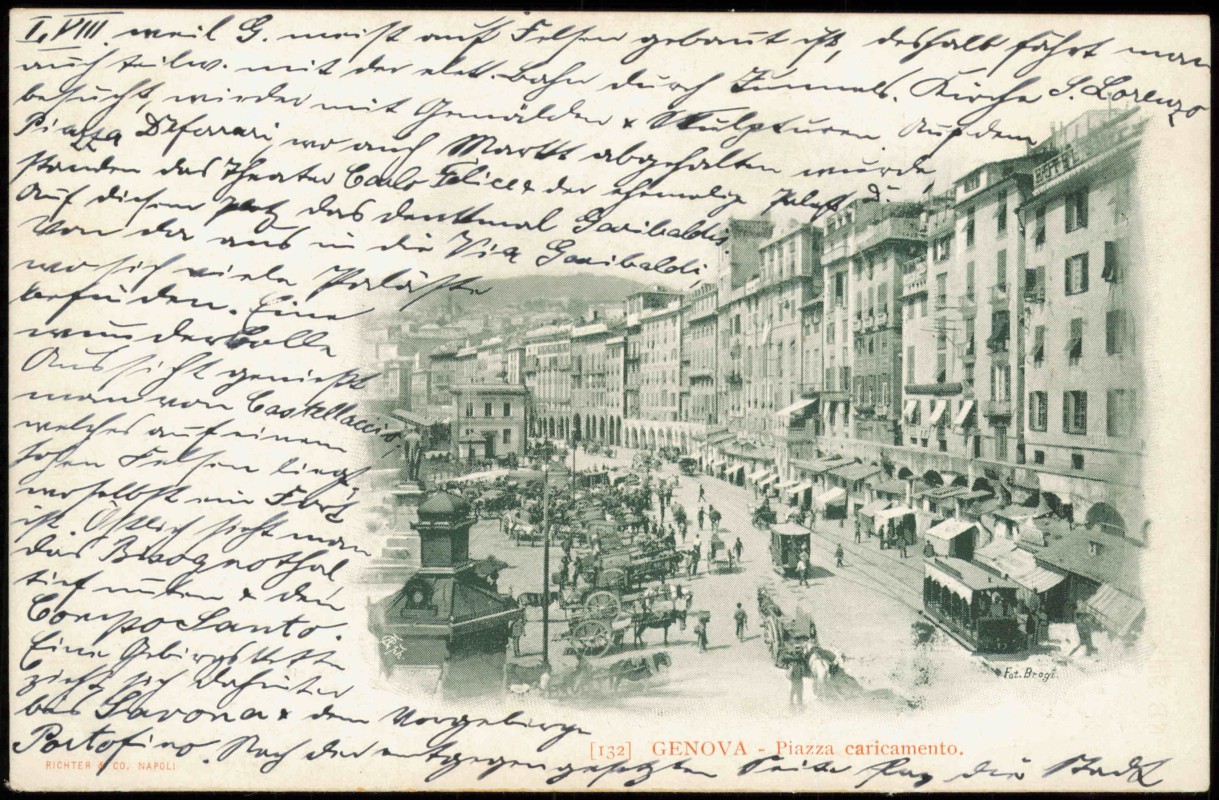 I, VIII. weil G. meist auf Felsen gebaut ist, deshalb fährt man
auch teilw. mit der elekt. Bahn durch Tunnels. Kirche S. Lorenzo
besucht, wieder mit Gemälden & Skulpturen. Auf dem
Piazza Deferrari, wo auch Markt abgehalten wurde
standen das Theater Carlo Felice & der ehemalig Palast d.
Auf diesem Platz das Denkmal Garibaldis.
Von da aus in die Via Garibaldi
wo sich viele Paläste
befinden. Eine
wundervolle
Aussicht genießt
man von Castellaccio
welches auf einem
hohen Felsen liegt,
woselbst ein Fort
ist. Östlich sieht man
das Bisognothal
tief unten & den
Campo Santo.
Eine Gebirgskette
zieht sich dahinter
bis Savona & dem Vorgebirge
Portofino. Nach der entgegengesetzten Seite lag die Stadt
HOTEL
Fot. Brogi.
[132] GENOVA - Piazza caricamento.
RICHTER & CO, NAPOLI